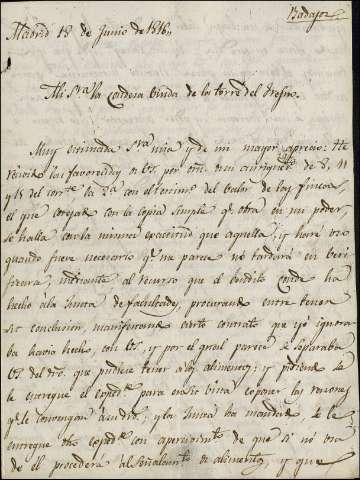 Badajoz
Madrid 18 de Junio de 1816,,
Mi S.ra la Condesa Viuda de la torre del fresno.
Muy estimada S.ra mia y de mi mayor aprecio: He
recivido las favorecidas de VS. por
y 15 del corr.te la 2.a con el testim.o del valor de las fincas,
el que cotejado con la copia simple q.e obra en mi poder,
se halla con la misma exactitud que aquella, y haré uso
quando fuere necesario q.e me parece no tardará en veri
ficarse, mediante al recurso que el bendito Conde ha
hecho á la Junta de facultades, procurando entre tener
su conclusion, manifestando cierto contrato que yó ignora
ba havia hecho con VS, y por el qual parece se separaba
VS. del dro. que pudiese tener á los alimentos; y pidiendo se
le entregue el exped.te para en su vista exponer las razones
q.e le convengan á su dro; y la Junta ha mandado se le
entregue dho exped.te con apercivim.to de que si no usa
de el procederá al señalam.to de alimentos, y que